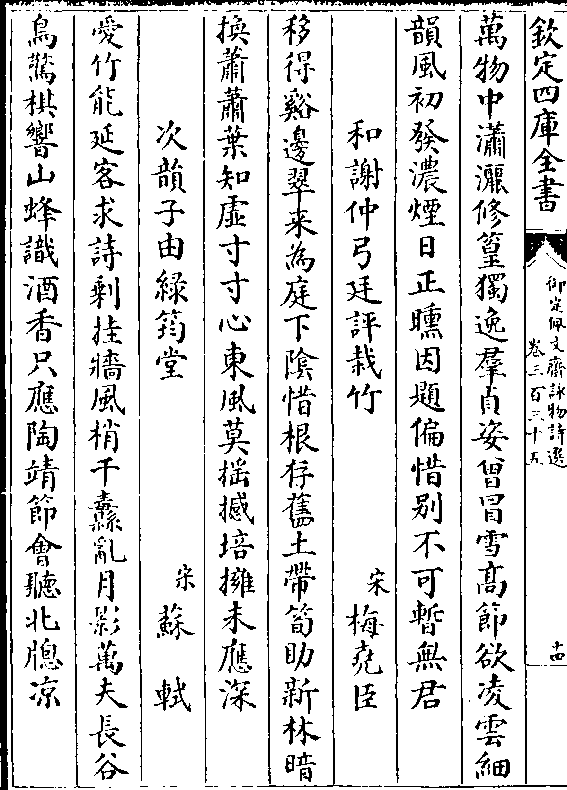 欽定四庫全書
御定佩文齋詠物詩選
卷三百三十五
十四
萬物中瀟灑修篁獨逸羣貞姿曾冒雪髙節欲凌雲細
韻風初發濃煙日正曛因題偏惜别不可暫無君
和謝仲弓廷評栽竹
宋梅堯臣
移得谿邊翠来為庭下陰惜根存舊土帶筍助新林暗
換蕭蕭葉知虛寸寸心東風莫揺撼培擁未應深
次韻子由緑筠堂
宋蘇軾
愛竹能延客求詩剰挂牆風梢千纛亂月影萬夫長谷
鳥驚棋響山蜂識酒香只應陶靖節會聽北牕凉